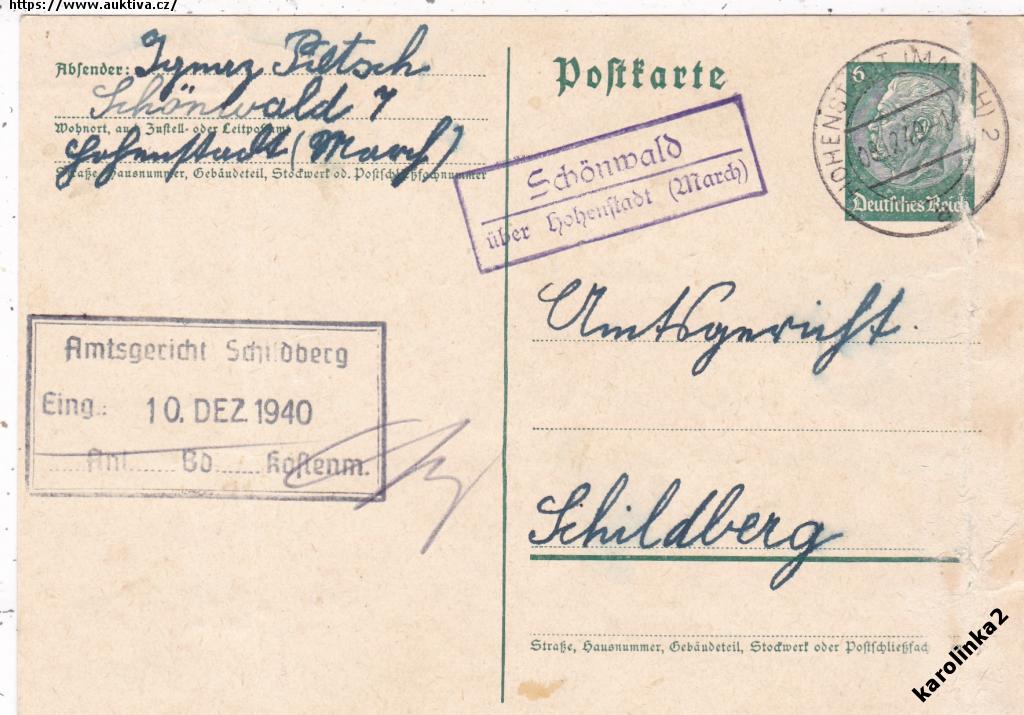 https://www.auktiva.cz/
Absender: Ignaz Pietsch
Schönwald 7
Wohnort, auch Zustell- oder Leitpostamt
Hohenstadt (March)
Straße, Hausnummer, Gebäudeteil, Stockwerk od. Postschließfachnummer
Postkarte
6
Deutsches Reich
HOHENSTADT (MARCH) 2
Schönwald
über Hohenstadt (March)
Amtsgericht Schildberg
Eing.: 10. DEZ. 1940
Anl. Bd. Kostenm.
Amtsgericht.
Schildberg
Straße, Hausnummer, Gebäudeteil, Stockwerk oder Postschließfach
karolinka2